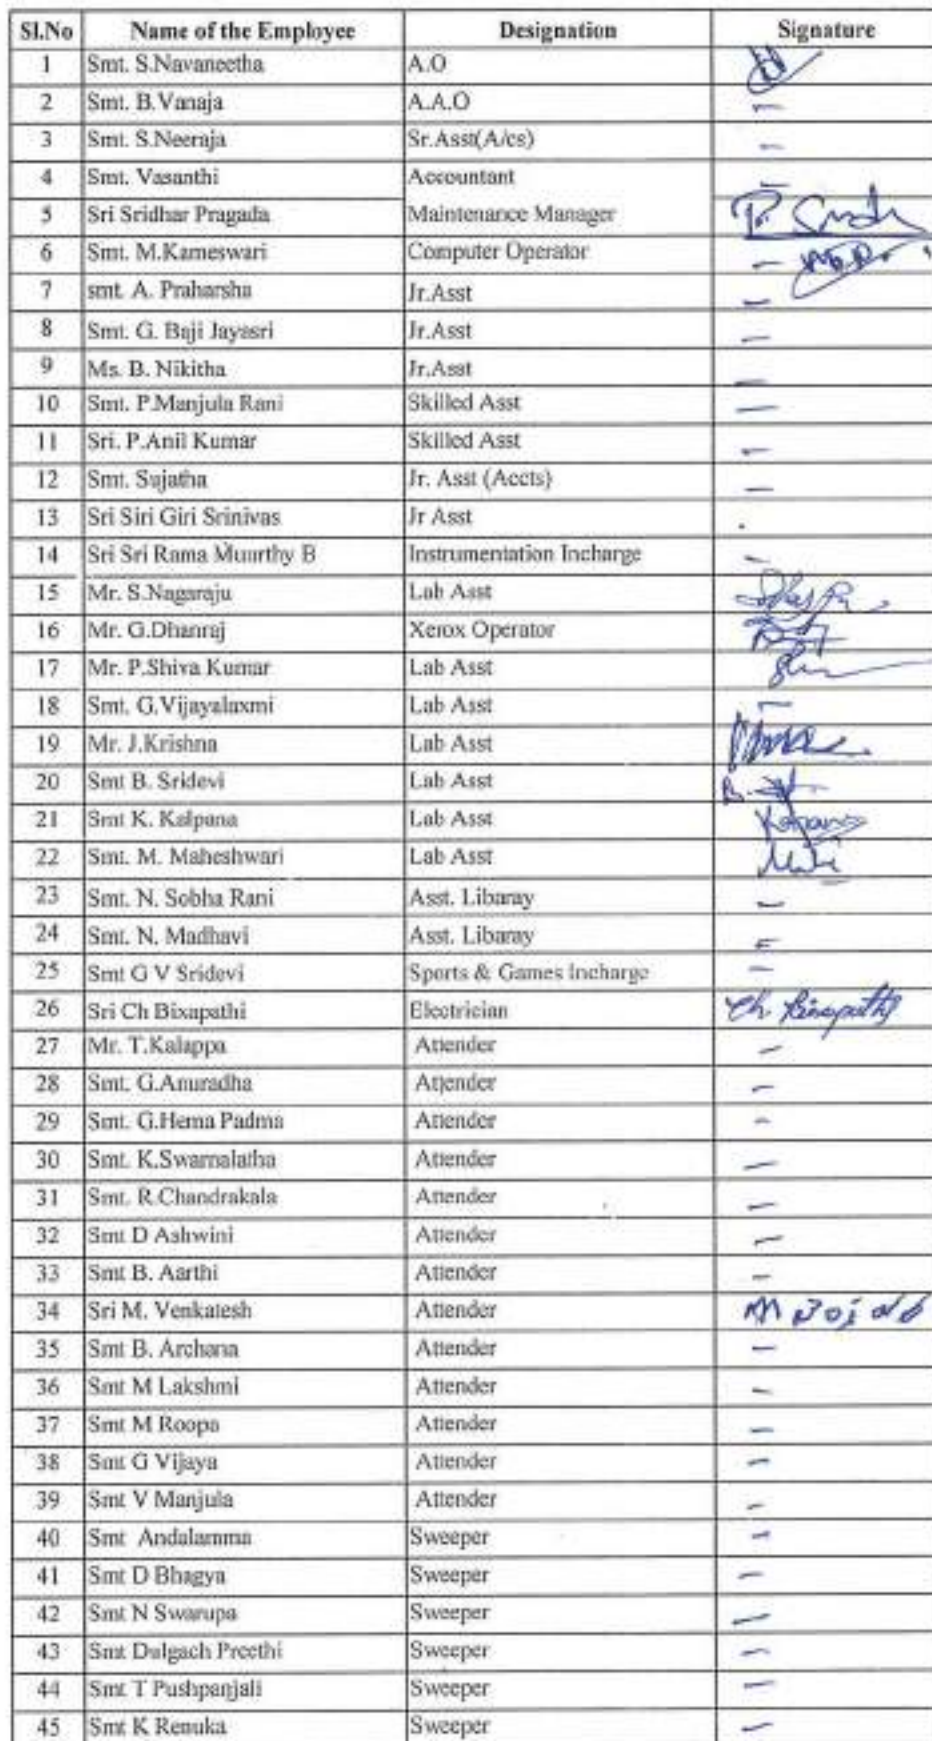 Sl.No Name of the Employee Designation Signature
1 Smt. S.Navaneetha A.O
2 Smt. B.Vanaja A.A.O –
3 Smt. S.Neeraja Sr.Asst(A/cs) –
4 Smt. Vasanthi Accountant –
5 Sri Sridhar Pragada Maintenance Manager
6 Smt. M.Kameswari Computer Operator –
7 smt. A. Praharsha Jr.Asst –
8 Smt. G. Baji Jayasri Jr.Asst –
9 Ms. B. Nikitha Jr.Asst –
10 Smt. P.Manjula Rani Skilled Asst –
11 Sri. P.Anil Kumar Skilled Asst –
12 Smt. Sujatha Jr. Asst (Accts) –
13 Sri Siri Giri Srinivas Jr Asst .
14 Sri Sri Rama Muurthy B Instrumentation Incharge –
15 Mr. S.Nagaraju Lab Asst
16 Mr. G.Dhanraj Xerox Operator
17 Mr. P.Shiva Kumar Lab Asst
18 Smt. G.Vijayalaxmi Lab Asst –
19 Mr. J.Krishna Lab Asst
20 Smt B. Sridevi Lab Asst
21 Smt K. Kalpana Lab Asst
22 Smt. M. Maheshwari Lab Asst
23 Smt. N. Sobha Rani Asst. Libaray –
24 Smt. N. Madhavi Asst. Libaray –
25 Smt G V Sridevi Sports & Games Incharge –
26 Sri Ch Bixapathi Electrician Ch.
27 Mr. T.Kalappa Attender –
28 Smt. G.Anuradha Attender –
29 Smt. G.Hema Padma Attender –
30 Smt. K.Swarnalatha Attender –
31 Smt. R.Chandrakala Attender –
32 Smt D Ashwini Attender –
33 Smt B. Aarthi Attender –
34 Sri M. Venkatesh Attender
35 Smt B. Archana Attender –
36 Smt M Lakshmi Attender –
37 Smt M Roopa Attender –
38 Smt G Vijaya Attender –
39 Smt V Manjula Attender –
40 Smt Andalamma Sweeper –
41 Smt D Bhagya Sweeper –
42 Smt N Swarupa Sweeper –
43 Smt Dulgach Preethi Sweeper –
44 Smt T Pushpanjali Sweeper –
45 Smt K Renuka Sweeper –